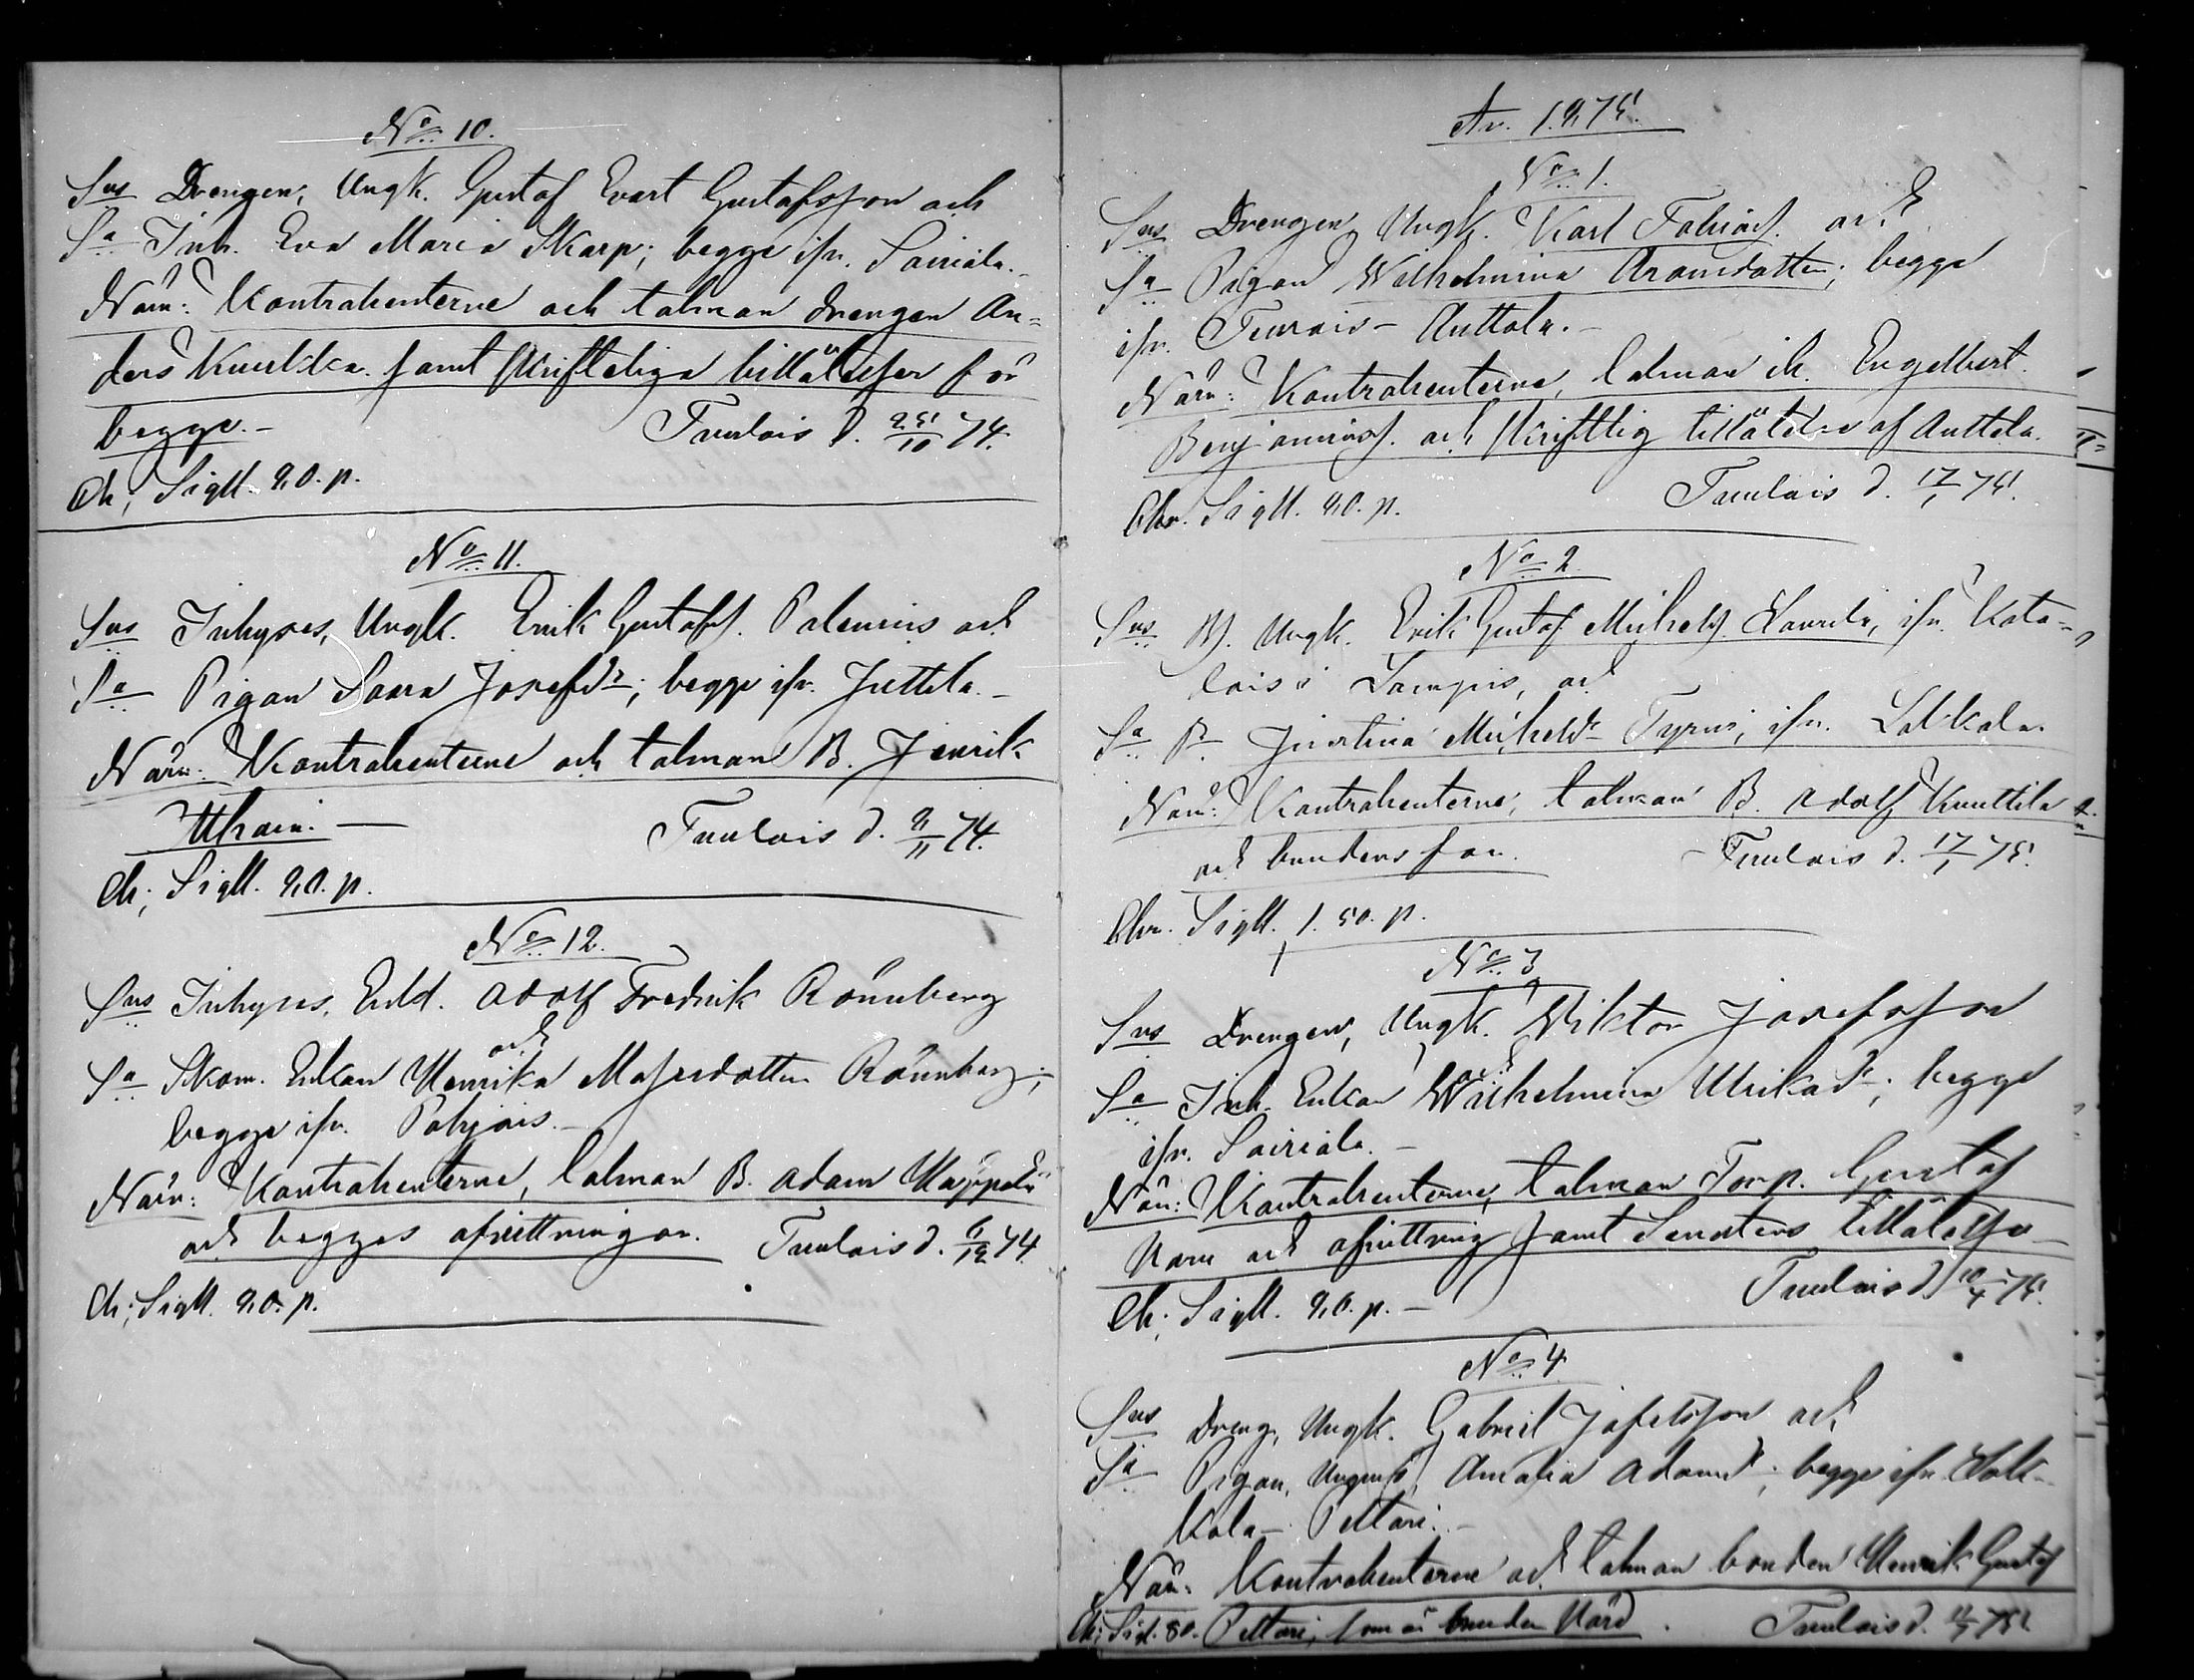 No 10.
Sns Drengen, Ungk. Gustaf Evert Gustafsson och
Sa Inh. Eva Maria Skarp; begge ifr. Sairiala.
Närv: Kontrahenterne och talman drengen An=
ders samt skriftliga tillåtelser för
begge.- Tuulois d. 25/10 74.
Ch; Sigll. 80. p.
No 11.
Sns Inhyses, Ungk. Erik Gustafss. Palenius och
Sa Pigan Saara Josefsdr; begge ifr. Juttila.-
Närv: Kontrahenterne och talman B. Henrik
Uhrain.- Tuulois d. 8/11 74.
Ch; Sigll. 80. p.
No 12.
Sns Inhyses, Enkl. Adolf Fredrik Rönnberg
och
Sa Skom. Enkan Henrika Rönnberg;
begge ifr. Pohjois.-
Närv: Kontrahenterne, talman B. Adam
och begges afvittringar. Tuulois d. 6/12 74
Ch; Sigll. 80. p.
År. 1875.
No 1.
Sns Drengen, Ungk. Karl Tobiass. och
Sa Pigan Wilhelmina Aronsdotter; begge
ifr. Anttola.-
Närv: Kontrahenterne, talman Engelbert
Benjaminss. och skriftlig tillåtelse af Anttola.
Chr. Sigll. 80. p. Tuulois d. 17/1 75.
No 2.
Sns Ungk. Erik Gustaf Michelss. Laurila, ifr. Kata=
lois i Lampis, och
Sa P. Justina Michelsdr Tyrni, ifr.
Närv: Kontrahenterne, talman B. Adolf Knuttila
och brudens far. Tuulois d. 17/1 75.
Chr. Sigll. 1. 50. p.
No 3
Sns Drengen, Ungk. Viktor Josefsson
och
Sa Inh. Enkan Wilhelmina Ulrikadr; begge
ifr. Sairiala.-
Närv: Kontrahenterne, talman Torp. Gustaf
och afvittring samt Senatens tillåtelse
Ch; Sigll. 80. p.- Tuulois d. 10/4 75.
No 4.
Sns Dreng, Ungk. Gabriel Jafetsson och
Sa Pigan, Amalia Adamsdr; begge ifr.
kola - Pettari.-
Närv: Kontrahenterne och talman bonden Henrik Gustaf
Ch; Sigl. 80. Pettari, som är Tuulois d. 75.